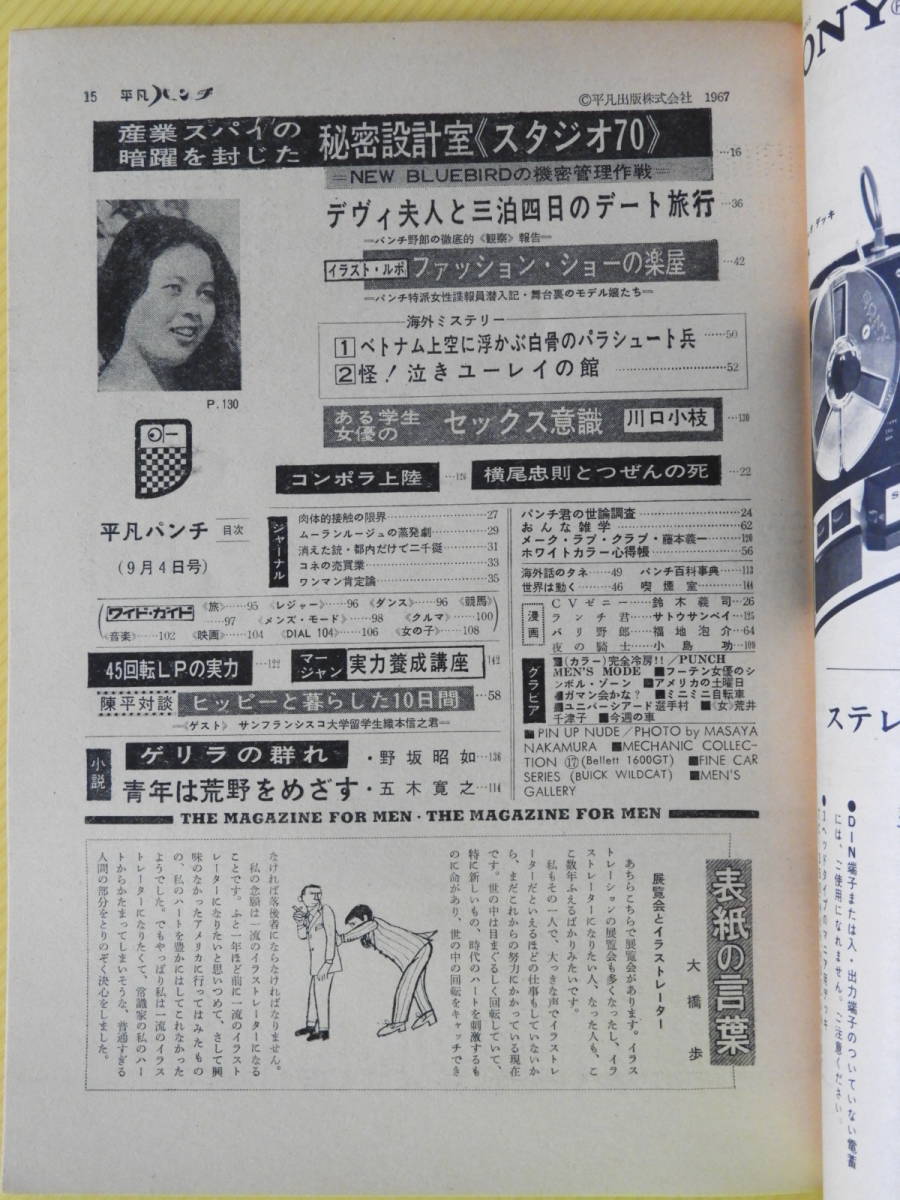 15 平凡パンチ
©平凡出版株式会社 1967
産業スパイの
暗躍を封じた 秘密設計室《スタジオ70》 …16
=NEW BLUEBIRDの機密管理作戦=
デヴィ夫人と三泊四日のデート旅行 …36
=パンチ野郎の徹底的《観察》報告=
イラスト・ルポ ファッション・ショーの楽屋 …42
=パンチ特派女性諜報員潜入記・舞台裏のモデル嬢たち=
海外ミステリー
1 ベトナム上空に浮かぶ白骨のパラシュート兵 ……50
2 怪!泣きユーレイの館 ……………………52
P.130
ある学生
女優の セックス意識 川口小枝 …130
コンポラ上陸 横尾忠則とつぜんの死 …22
平凡パンチ 目次
(9月4日号)
ジャーナル
肉体的接触の限界 27
ムーランルージュの蒸発劇 29
消えた銃・都内だけで二千挺 31
コネの売買業 33
ワンマン肯定論 35
ワイド・ガイド 《旅》……95 《レジャー》……96 《ダンス》……96 《競馬》
……97 《メンズ・モード》……98 《クルマ》……100
《音楽》……102 《映画》……104 《DIAL 104》……106 《女の子》……108
45回転LPの実力 …122 マージャン 実力養成講座 142
陳平対談 ヒッピーと暮らした10日間 …58
=《ゲスト》 サンフランシスコ大学留学生織本信之君=
小説
ゲリラの群れ ・野坂昭如 …136
青年は荒野をめざす ・五木寛之 …114
パンチ君の世論調査 24
おんな雑学 62
メーク・ラブ・クラブ・藤本義一 120
ホワイトカラー心得帳 56
海外話のタネ……49 パンチ百科事典……113
世界は動く……46 喫煙室……144
漫画
CVゼニー……鈴木義司…26
ランチ君……サトウサンペイ…125
パリ野郎……福地泡介…64
夜の騎士……小島功…109
グラビア
■(カラー)完全冷房!!/PUNCH
MEN'S MODE ■フーテン女優のシ
ンボル・ゾーン ■アメリカの土曜日
■ガマン会かな? ■ミニミニ自転車
■ユニバーシアード選手村 ■《女》荒井
千津子 ■今週の車
■PIN UP NUDE/PHOTO by MASAYA
NAKAMURA ■MECHANIC COLLEC-
TION ⑰(Bellett 1600GT) ■FINE CAR
SERIES (BUICK WILDCAT) ■MEN'S
GALLERY
THE MAGAZINE FOR MEN・THE MAGAZINE FOR MEN
表紙の言葉
大橋歩
展覧会とイラストレーター
あちらこちらで展覧会があります。イラス
トレーションの展覧会も多くなったし、イラ
ストレーターになりたい人、なった人も、こ
こ数年ふえるばかりみたいです。
私もその一人で、大っきな声でイラストレ
ーターだといえるほどの仕事もしていないか
ら、まだこれからの努力にかかっている現在
です。世の中は目まぐるしく回転していて、
特に新しいもの、時代のハートを刺激するも
のに命があり、世の中の回転をキャッチでき
なければ落後者にならなければなりません。
私の念願は一流のイラストレーターになる
ことです。ふと一年ほど前に一流のイラスト
レーターになりたいと思いつめて、さして興
味のなかったアメリカに行ってはみたもの
の、私のハートを豊かにはしてこれなかった
ようでした。でもやっぱり私は一流のイラス
トレーターになりたくて、常識家の私のハー
トからかたまってしまいそうな、普通すぎる
人間の部分をとりのぞく決心をしました。
ONY
ステレ
●DIN端子または入・出力端子のついていない電蓄
には、ご使用になれません。ご注意ください。